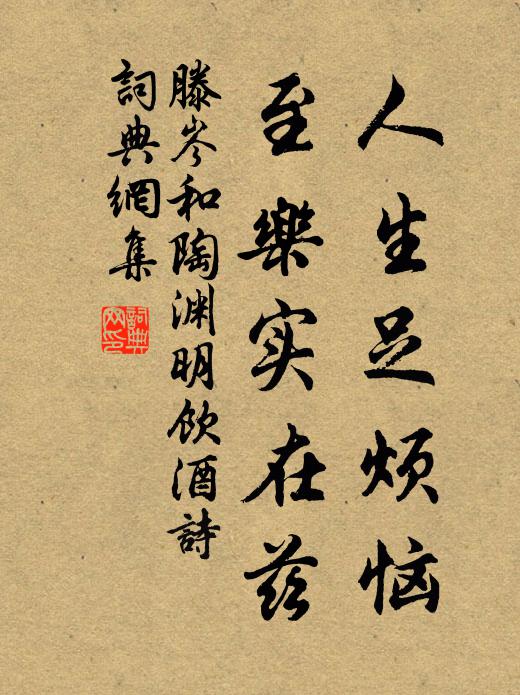 人生足烦恼
至樂实在茲
滕岑和陶渊明飲酒詩
詞典網集
詞典网印